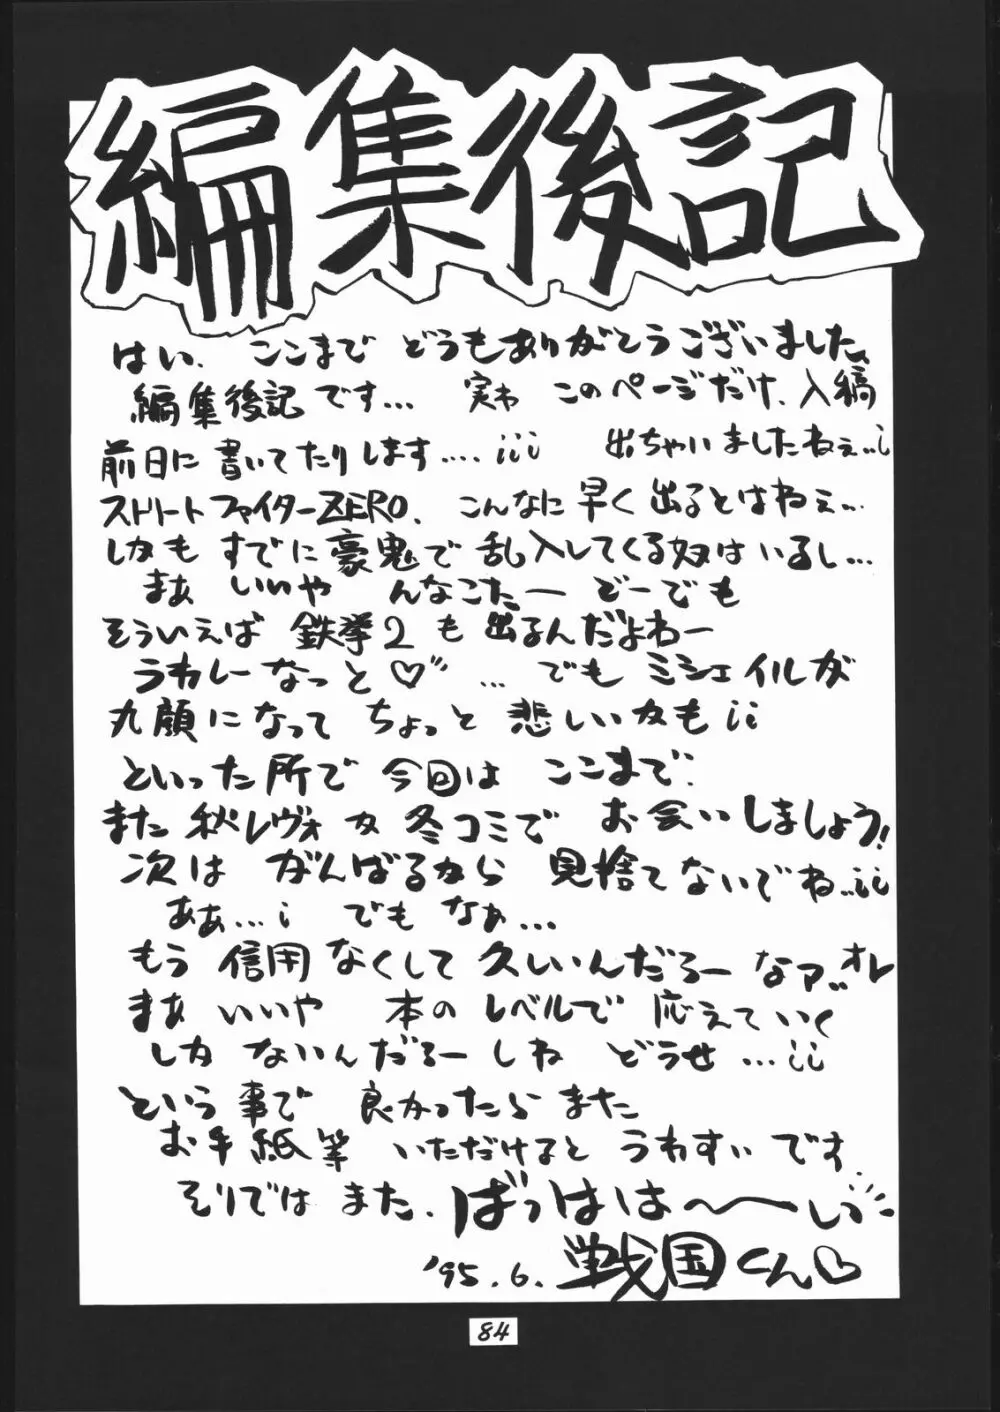 編集後記
はい、ここまで どうもありがとうございました、
編集後記です… 実わ このページだけ、入稿
前日に書いてたりします….iii 出ちゃいましたねぇ..i
ストリートファイターZERO、こんなに早く出るとはねぇ…
しかも すでに豪鬼で乱入してくる奴はいるし…
まぁ いいや んなこたー どーでも
そういえば 鉄拳2も 出るんだよねー
うれしーなっと♡〃 … でも ミシェイルが
丸顔になって ちょっと 悲しいかもii
といった所で 今回は ここまで.
また 秋レヴォ か 冬コミで お会いしましょう!
次は がんばるから 見捨てないでね..ii
ああ…i でも なぁ…
もう 信用なくして 久しいんだろーなァ..オレ
まぁ いいや 本の レベルで 応えていく
しか ないんだろーしね どうせ …ii
という事で 良かったら また
お手紙等 いただけると うれすぃです.
そりでは また. ばっはは〜〜い
'95.6. 戦国くん♡
84